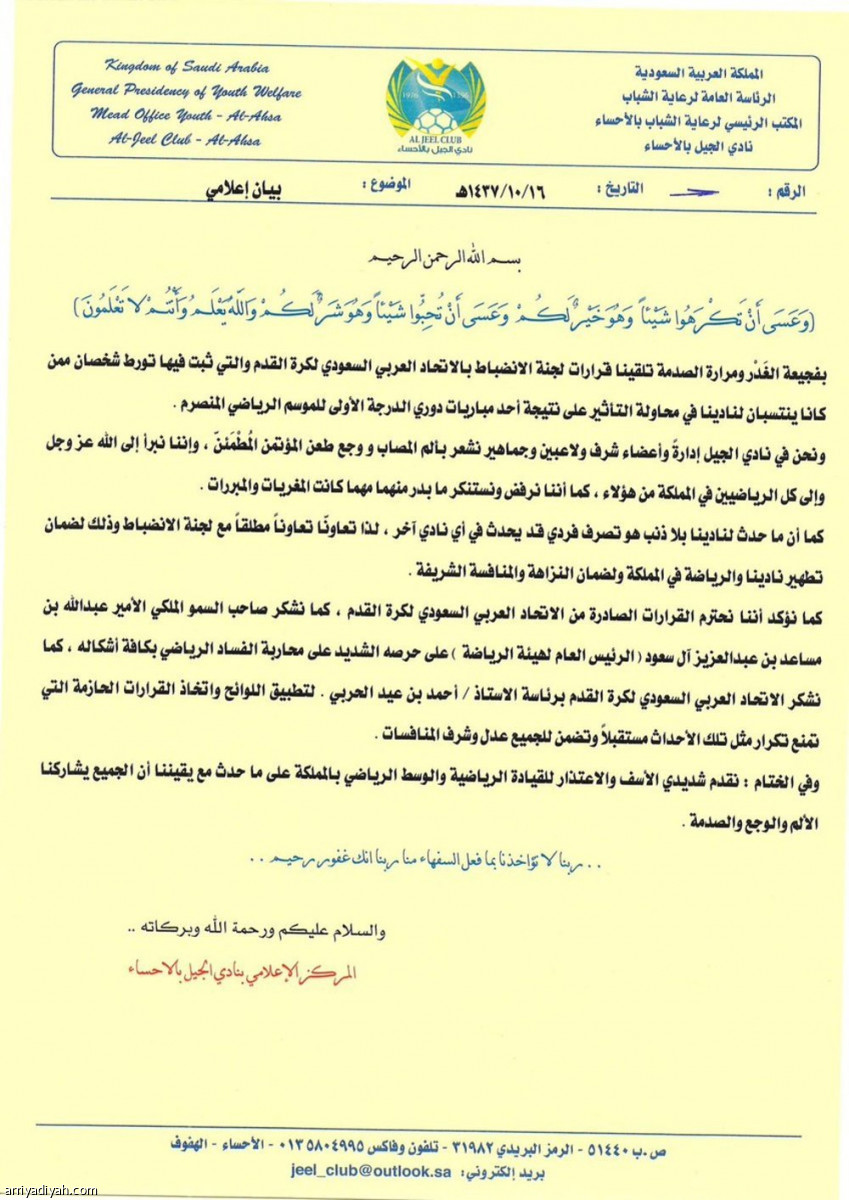 Kingdom of Saudi Arabia
General Presidency of Youth Welfare
Mead Office Youth - Al-Ahsa
Al-Jeel Club - Al-Ahsa
AL JEEL CLUB
نادي الجيل بالأحساء
المملكة العربية السعودية
الرئاسة العامة لرعاية الشباب
المكتب الرئيسي لرعاية الشباب بالأحساء
نادي الجيل بالأحساء
الرقم : التاريخ : ١٤٣٧/١٠/١٦هـ الموضوع : بيان إعلامي
بسم الله الرحمن الرحيم
(وَعَسَى أَنْ تَكْرَهُوا شَيْئاً وَهُوَ خَيْرٌ لَكُمْ وَعَسَى أَنْ تُحِبُّوا شَيْئاً وَهُوَ شَرٌّ لَكُمْ وَاللَّهُ يَعْلَمُ وَأَنْتُمْ لا تَعْلَمُونَ)
بفجيعة الغَدْر ومرارة الصدمة تلقينا قرارات لجنة الانضباط بالاتحاد العربي السعودي لكرة القدم والتي ثبت فيها تورط شخصان ممن
كانا ينتسبان لنادينا في محاولة التأثير على نتيجة أحد مباريات دوري الدرجة الأولى للموسم الرياضي المنصرم .
ونحن في نادي الجيل إدارةً وأعضاء شرف ولاعبين وجماهير نشعر بألم المصاب و وجع طعن المؤتمن المُطْمَئنّ ، وإننا نبرأ إلى الله عز وجل
وإلى كل الرياضيين في المملكة من هؤلاء ، كما أننا نرفض ونستنكر ما بدر منهما مهما كانت المغريات والمبررات .
كما أن ما حدث لنادينا بلا ذنب هو تصرف فردي قد يحدث في أي نادي آخر ، لذا تعاونّا تعاوناً مطلقاً مع لجنة الانضباط وذلك لضمان
تطهير نادينا والرياضة في المملكة ولضمان النزاهة والمنافسة الشريفة .
كما نؤكد أننا نحترم القرارات الصادرة من الاتحاد العربي السعودي لكرة القدم ، كما نشكر صاحب السمو الملكي الأمير عبدالله بن
مساعد بن عبدالعزيز آل سعود ( الرئيس العام لهيئة الرياضة ) على حرصه الشديد على محاربة الفساد الرياضي بكافة أشكاله ، كما
نشكر الاتحاد العربي السعودي لكرة القدم برئاسة الاستاذ / أحمد بن عيد الحربي . لتطبيق اللوائح واتخاذ القرارات الحازمة التي
تمنع تكرار مثل تلك الأحداث مستقبلاً وتضمن للجميع عدل وشرف المنافسات .
وفي الختام : نقدم شديدي الأسف والاعتذار للقيادة الرياضية والوسط الرياضي بالمملكة على ما حدث مع يقيننا أن الجميع يشاركنا
الألم والوجع والصدمة .
.. ربنا لا تؤاخذنا بما فعل السفهاء منا ربنا انك غفور رحيم ..
والسلام عليكم ورحمة الله وبركاته ..
المركز الإعلامي بنادي الجيل بالاحساء
ص.ب ٥١٤٤٠ - الرمز البريدي ٣١٩٨٢ - تلفون وفاكس ٠١٣٥٨٠٤٩٩٥ - الأحساء - الهفوف
بريد إلكتروني: jeel_club@outlook.sa
arriyadiyah.com